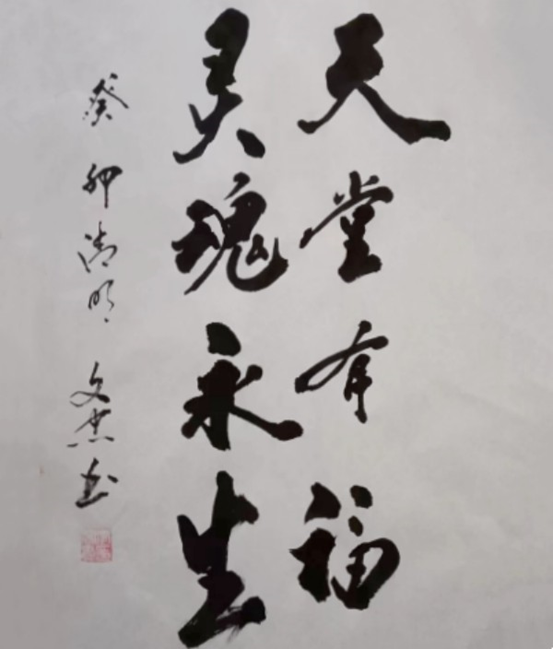 天堂有福
灵魂永生
癸卯清明 文杰书